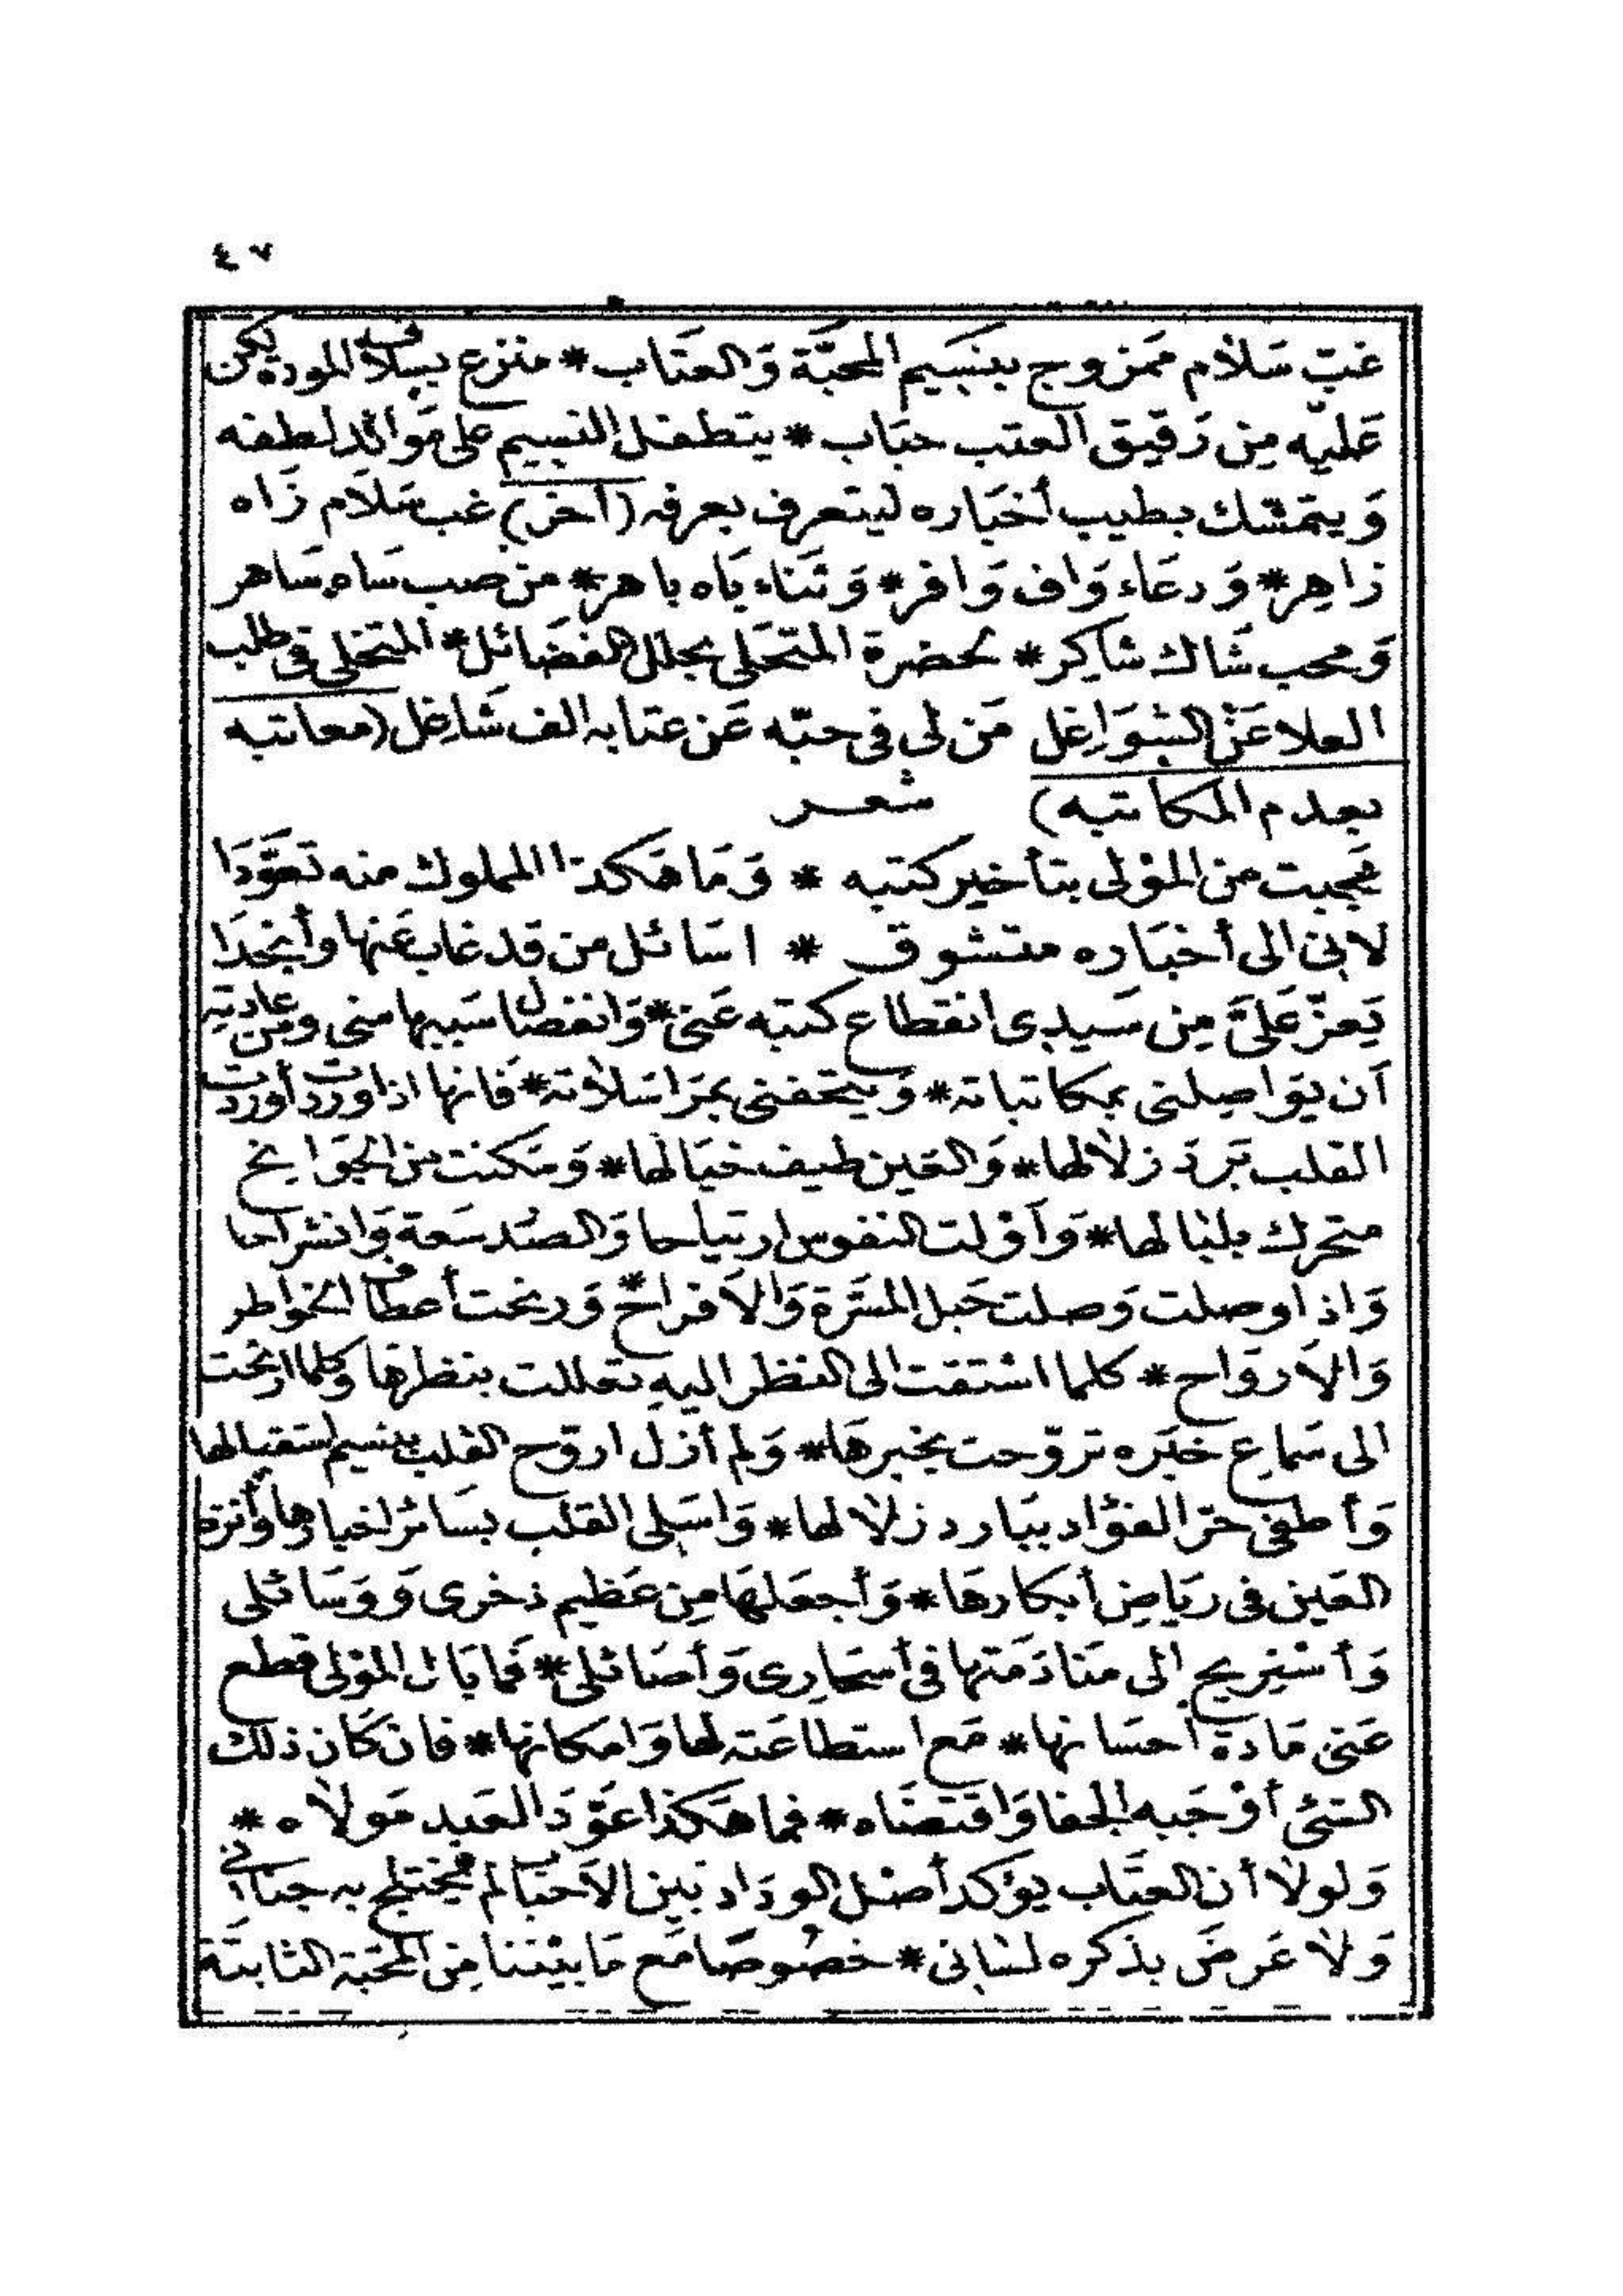 ٤٧
غب سلام ممزوج بنسيم المحبة والعتاب * منزع بسلافة المودة لكن
عليه من رقيق العتب حباب * يتطفل النسيم على موائد لطفه
ويتمسك بطيب أخباره ليتعرف بعرفه (آخر) غب سلام زاه
زاهر * ودعاء واف وافر * وثناء باه باهر * من صب ساه ساهر
ومحب شاك شاكر * لحضرة المتحلي بحلل الفضائل * المتخلي في طلب
العلا عن الشواغل من لي في حبه عن عتابه الف شاغل (معاتبه
بعدم المكاتبه) شعر
عجبت من المولى بتأخير كتبه * وما هكذا المملوك منه تعودا
لاني الى أخباره متشوق * اسائل من قد غاب عنها وأنجدا
يعز علي من سيدي انقطاع كتبه عني * وانفصال سببها مني ومن عادته
أن يواصلني بمكاتباته * ويتحفني بمراسلاته * فانها اذا وردت أوردت
القلب برد زلالها * والعين طيف خيالها * وسكنت من الجوانح
متحرك بلبالها * وأولت النفوس ارتياحا والصدر سعة وانشراحا
واذا وصلت وصلت حبل المسرة والأفراح * ورنحت أعطاف الخواطر
والأرواح * كلما اشتقت الى النظر اليه تعللت بنظرها وكلما ارتحت
الى سماع خبره تروحت بخبرها * ولم أزل اروح القلب بنسيم استقبالها
وأطفئ حر الفؤاد ببارد زلالها * واسلي القلب بسائر اخبارها وأنزه
العين في رياض أبكارها * وأجعلها من عظيم ذخري ووسائلي
وأستريح الى منادمتها في أسحاري وأصائلي * فما بال المولى قطع
عني مادة احسانها * مع استطاعته لها وامكانها * فان كان ذلك
الشئ أوجبه الجفا واقتضاه * فما هكذا عود العبد مولاه *
ولولا أن العتاب يؤكد أصل الوداد بين الأحباب لم يختلج به جناني
ولا عرض بذكره لساني * خصوصا مع ما بيننا من المحبة الثابتة